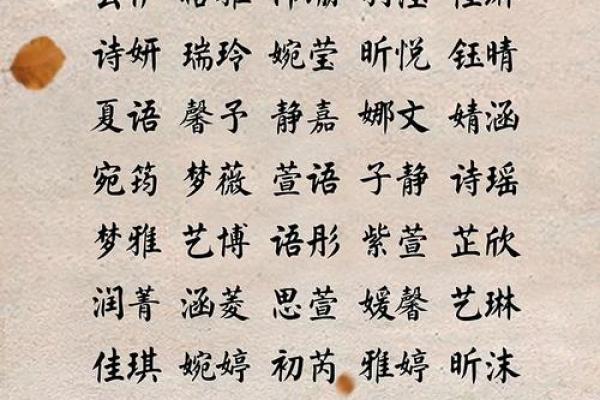 诗妍 瑞玲 婉莹 昕悦 钰晴
夏语 馨予 静嘉 娜文 婧涵
宛筠 梦薇 萱语 子静 诗瑶
梦雅 艺博 语彤 紫萱 芷欣
润菁 涵菱 思萱 媛馨 艺琳
佳琪 婉婷 初芮 雅婷 昕沫